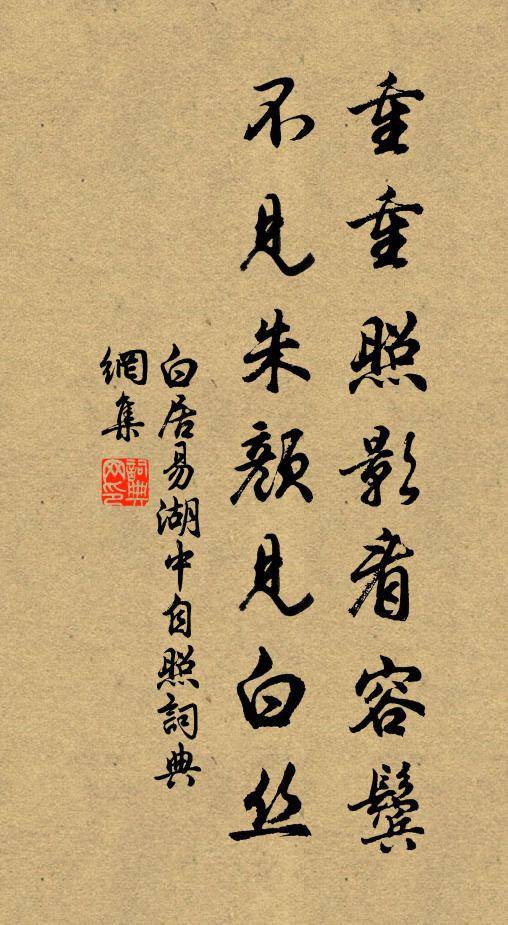 重重照影看容鬓
不见朱颜见白丝
白居易湖中自照詞典
網集
詞典
网印